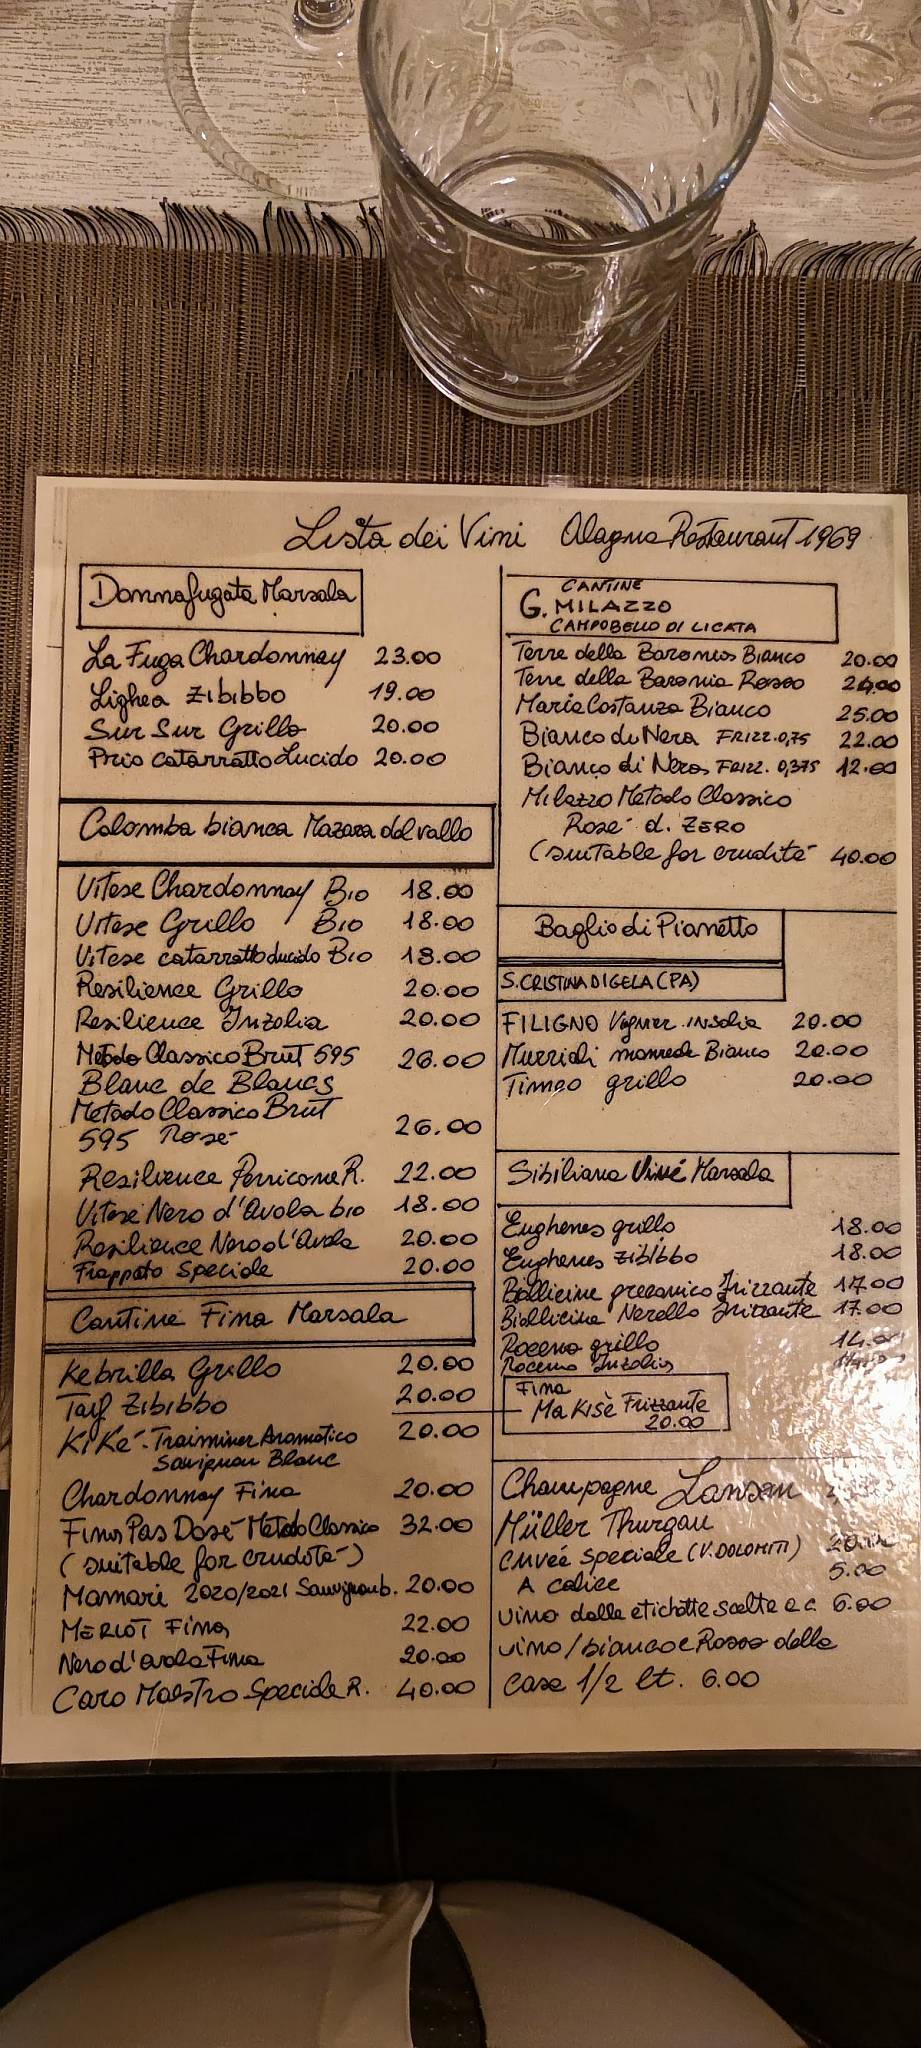 Lista dei Vini Alagna Restaurant 1969
Donnafugata Marsala
La Fuga Chardonnay 23.00
Lighea Zibibbo 19.00
Sur Sur Grillo 20.00
Prio catarratto Lucido 20.00
Colomba bianca Mazara del vallo
Vitese Chardonnay Bio 18.00
Vitese Grillo Bio 18.00
Vitese catarratto Lucido Bio 18.00
Resilience Grillo 20.00
Resilience Inzolia 20.00
Metodo Classico Brut 595 26.00
Blanc de Blancs
Metodo Classico Brut
595 Rosé 26.00
Resilience Perricone R. 22.00
Vitese Nero d'Avola bio 18.00
Resilience Nero d'Avola 20.00
Frappato Speciale 20.00
Cantine Fina Marsala
Kebrilla Grillo 20.00
Taif Zibibbo 20.00
KiKé - Traminer Aromatico 20.00
Sauvignon Blanc
Chardonnay Fina 20.00
Fina Pas Dosé Metodo Classico 32.00
(suitable for crudité)
Mamarì 2020/2021 Sauvignon b. 20.00
MERLOT Fina 22.00
Nero d'avola Fina 20.00
Caro Maestro Speciale R. 40.00
CANTINE
G. MILAZZO
CAMPOBELLO DI LICATA
Terre della Baronia Bianco 20.00
Terre della Baronia Rosso
Maria Costanza Bianco 25.00
Bianco di Nera FRIZZ. 0,75 22.00
Bianco di Nera FRIZZ. 0,375 12.00
Milazzo Metodo Classico
Rosé d. ZERO
(suitable for crudité 40.00
Baglio di Pianetto
S. CRISTINA DI GELA (PA)
FILIGNO Viogner insolia 20.00
Murriali Bianco 20.00
Timeo grillo 20.00
Sibiliana Vini Marsala
Eughenes grillo 18.00
Eughenes Zibibbo 18.00
Bollicine grecanico Frizzante 17.00
Bollicine Nerello Frizzante 17.00
Roceno grillo 14.00
Roceno Inzolia
Fina
Ma Kisè Frizzante
20.00
Champagne Lanson
Müller Thurgau
Cuveé Speciale (V. DOLOMITI) 20.00
A calice 5.00
vino dalle etichette scelte a c. 6.00
vino / bianco e Rosso della
casa 1/2 lt. 6.00